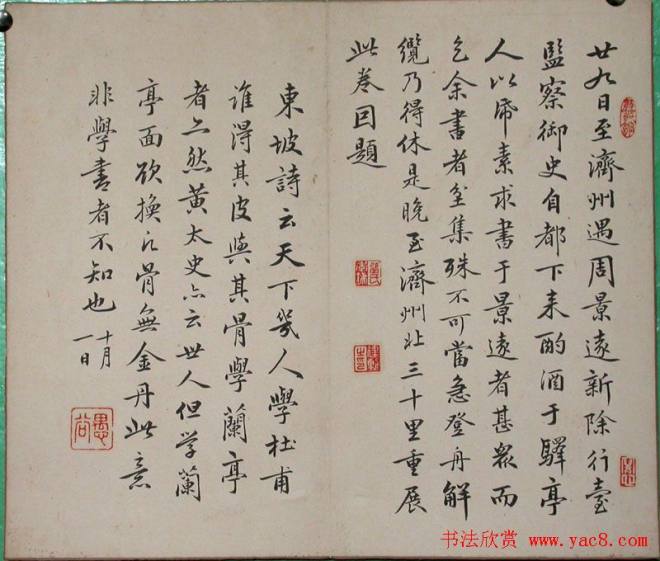 廿九日至濟州遇周景遠新除行臺
監察御史自都下来酌酒于驛亭
人以帋素求書于景遠者甚衆而
乞余書者坌集殊不可當急登舟解
纜乃得休是晚至濟州北三十里重展
此卷因題
東坡詩云天下幾人學杜甫
誰得其皮與其骨學蘭亭
者亦然黄太史亦云世人但学蘭
亭面欲換凡骨無金丹此意
非學書者不知也 十月
一日
书法欣赏 www.yac8.com